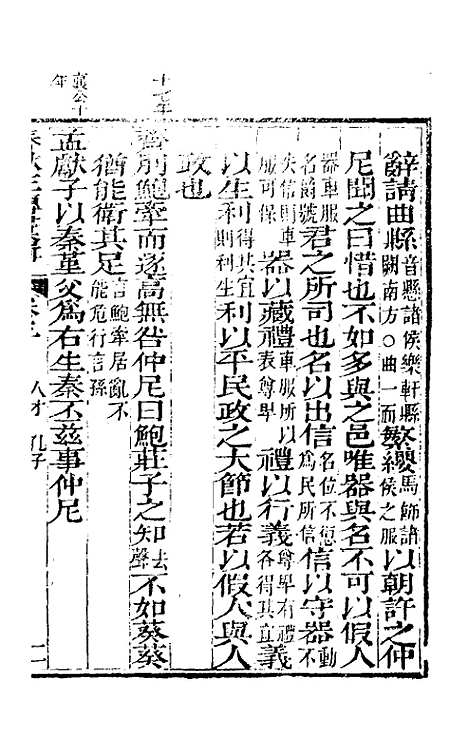 辭請曲縣音懸諸侯樂軒縣闕南方〇曲一而繁纓馬飾諸侯之服以朝許之仲
尼聞之曰惜也不如多與之邑唯器與名不可以假人
器車服名爵號君之所司也名以出信名位不愆為民所信信以守器動不
失信則車服可保器以藏禮車服所以表尊卑禮以行義尊卑有禮各得其宜義
以生利得其宜則利生利以平民政之大節也若以假人與人
政也
十七年
齊刖鮑牽而逐高無咎仲尼曰鮑莊子之知去聲不如葵葵
猶能衛其足言鮑牽居亂不能危行言孫
襄公十年
孟獻子以秦堇父為右生秦丕茲事仲尼
人才 孔子